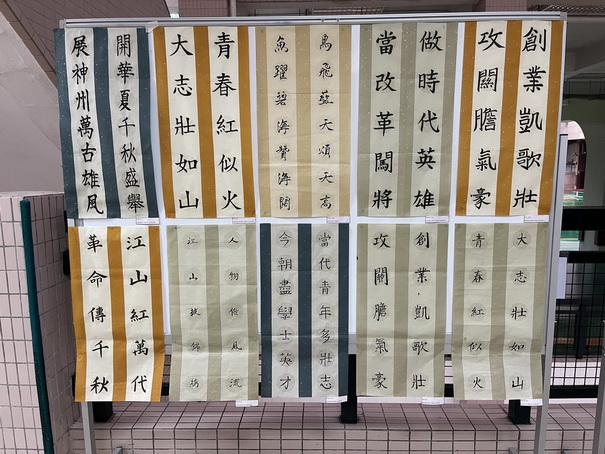 創業凱歌壯
攻關膽氣豪
做時代英雄
當改革闖將
鳥飛藍天頌天高
魚躍碧海贊海闊
青春紅似火
大志壯如山
開華夏千秋盛舉
展神州萬古雄風
大志壯如山
青春紅似火
創業凱歌壯
攻關膽氣豪
當代青年多壯志
今朝盡學士英才
人物風流
江山披錦繡
江山紅萬代
革命傳千秋